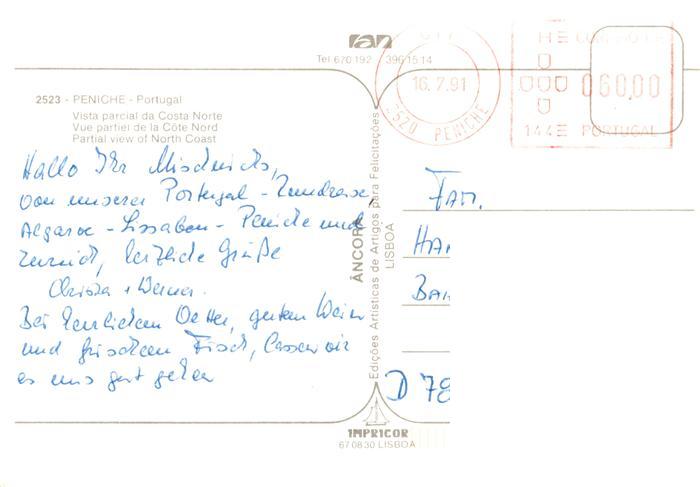 ran
Tel. 670192 - 3961514
CTT
16.7.91
2520 PENICHE
060,00
144 PORTUGAL
2523 - PENICHE - Portugal
Vista parcial da Costa Norte
Vue partiel de la Côte Nord
Partial view of North Coast
Hallo Ihr
von unserer Portugal - Rundreise,
Algarve - Lissabon - Peniche und
zurück, herzliche Grüße
Christa + Werner.
Bei herrlichem Wetter, gutem Wein
und frischem Fisch, lassen wir
es uns gut gehen
ÂNCORA
Edições Artísticas de Artigos para Felicitações
LISBOA
FAM.
HA
BA
D 78
IMPRICOR
670830 LISBOA